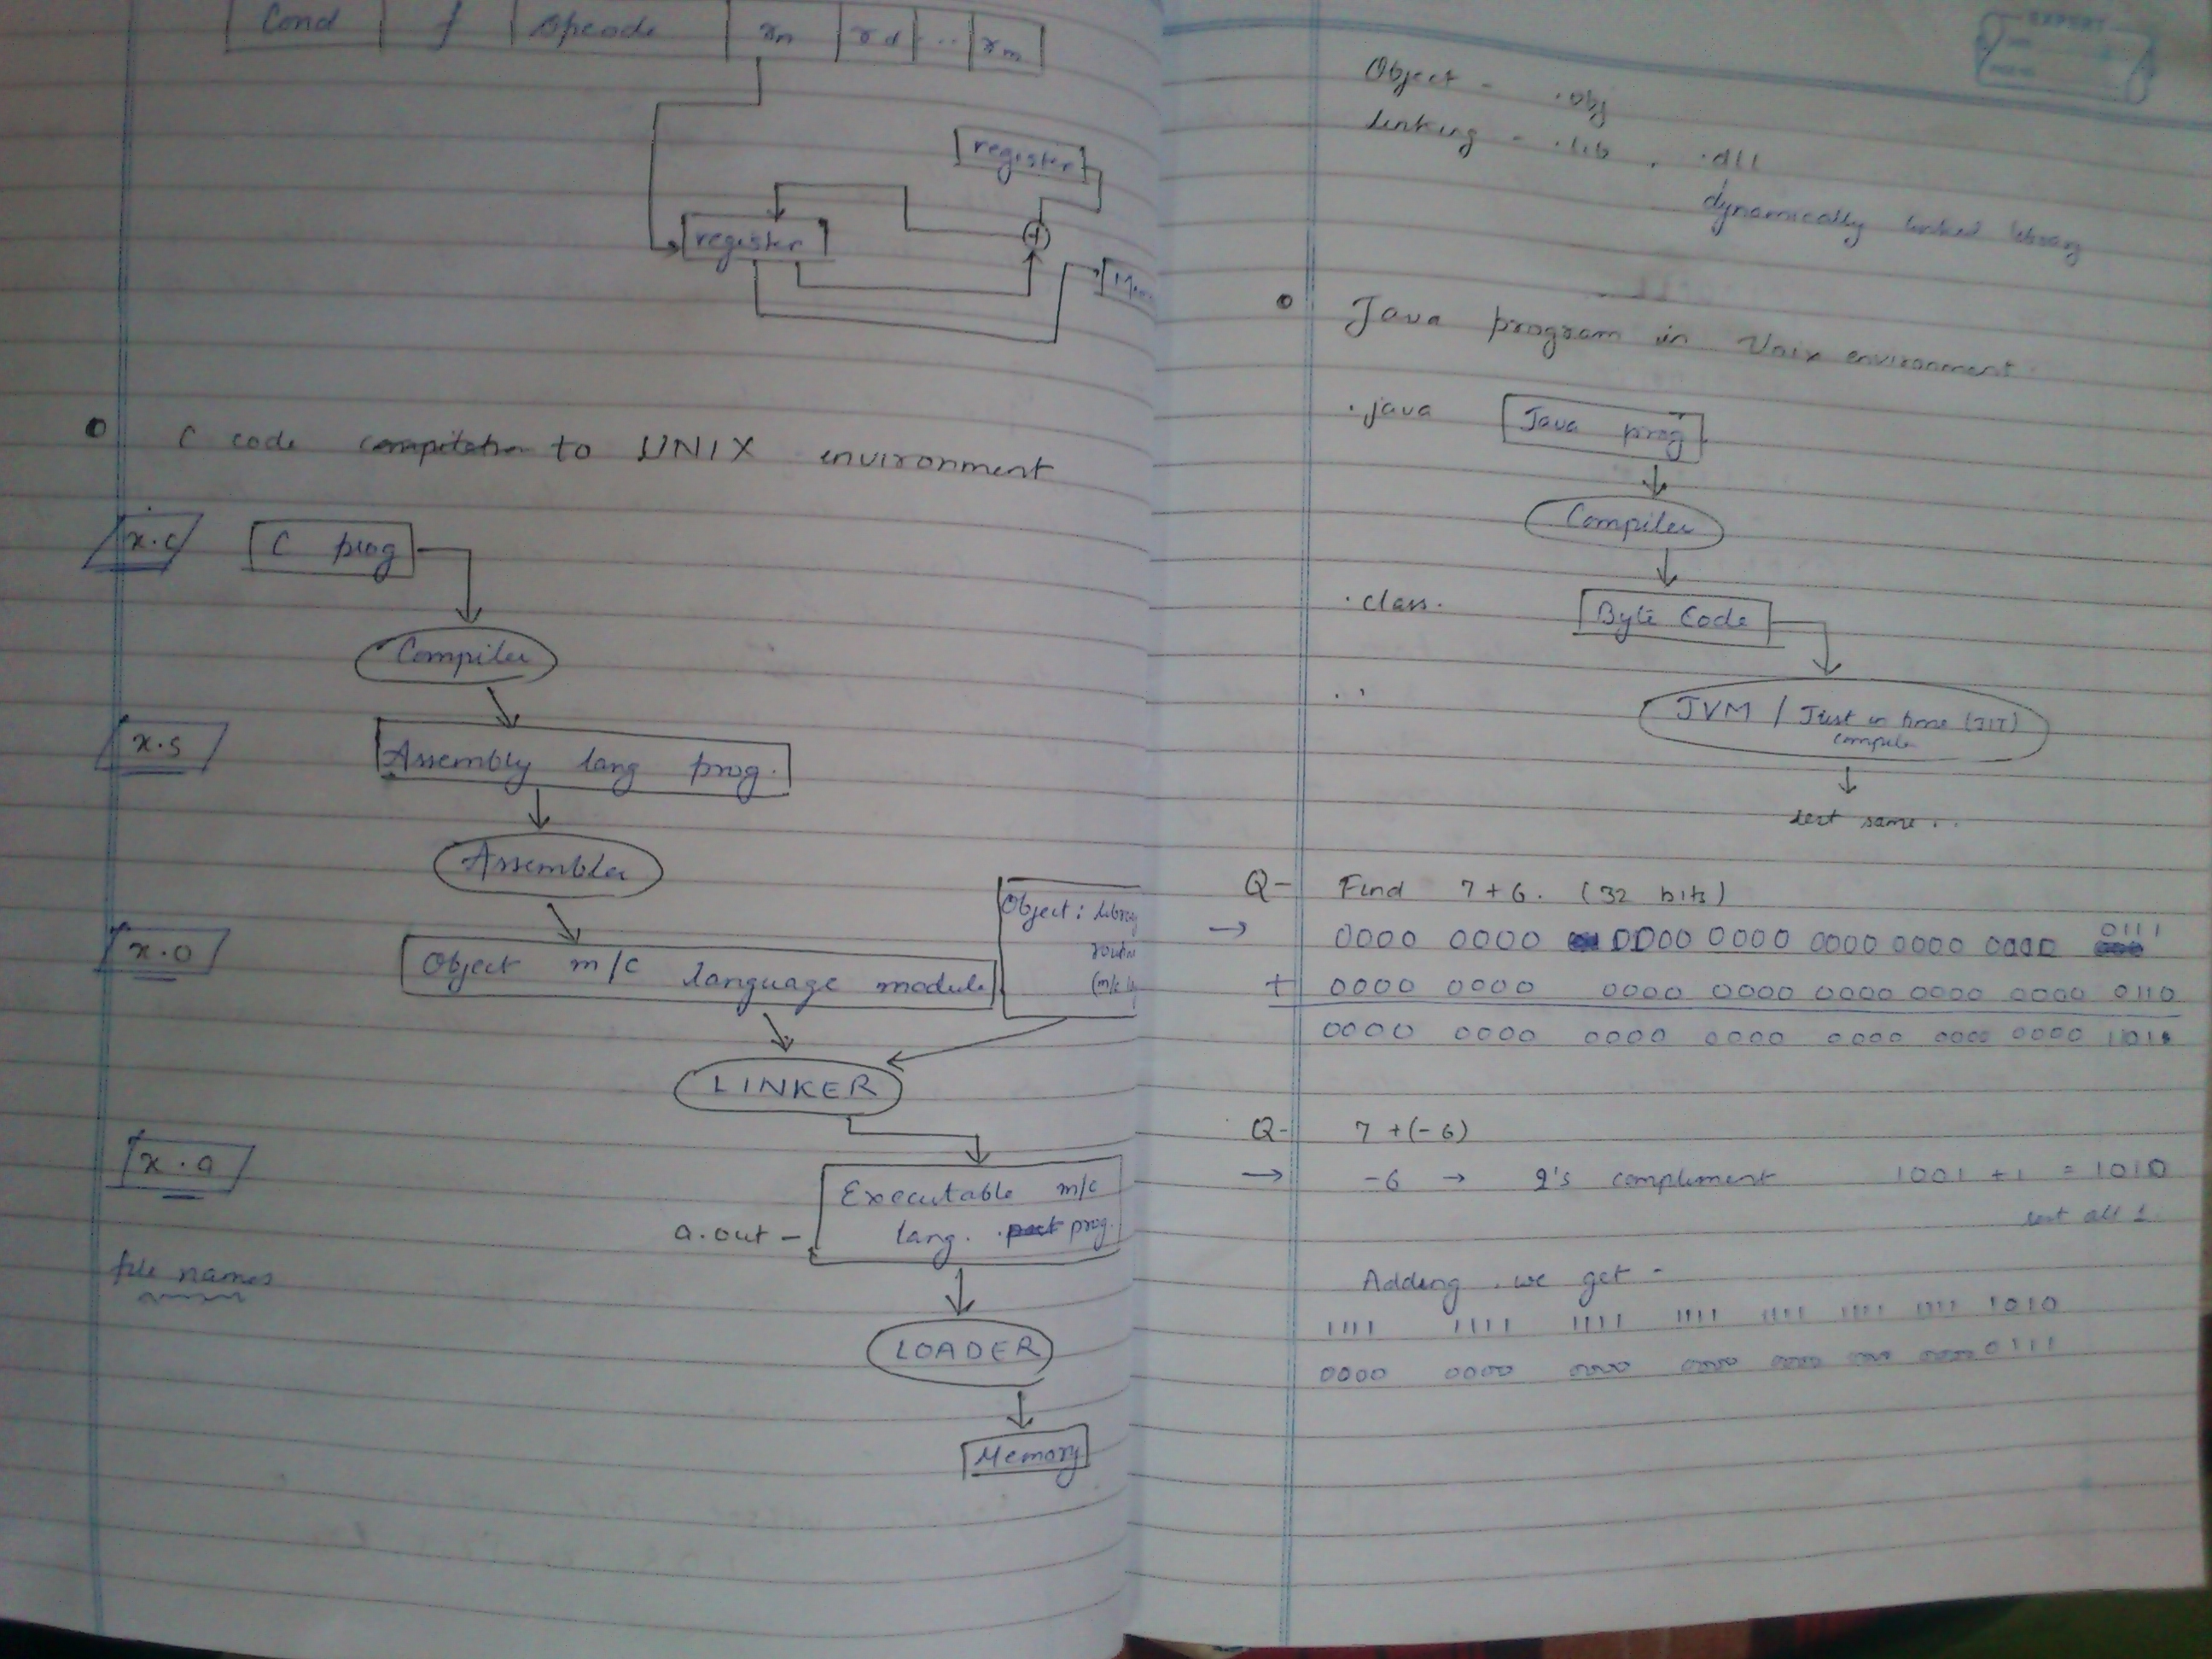 Cond f Opcode rn rd ... rm
register
register
+
C code compilation to UNIX environment
x.c C prog
Compiler
x.s Assembly lang prog.
Assembler
x.o Object m/c language module
Object: library
LINKER
x.a Executable m/c
a.out - lang. prog.
file names
LOADER
Memory
EXPERT
Object - .obj
Linking - .lib , .dll
dynamically linked library
Java program in Unix environment
.java Java prog
Compiler
.class. Byte Code
JVM / Just in time (JIT)
compile
rest same ..
Q- Find 7+6. (32 bits)
→ 0000 0000 0000 0000 0000 0000 0000 0111
+ 0000 0000 0000 0000 0000 0000 0000 0110
0000 0000 0000 0000 0000 0000 0000 1101
Q- 7 +(-6)
→ -6 → 2's compliment 1001 +1 = 1010
rest all 1.
Adding, we get -
1111 1111 1111 1111 1111 1111 1111 1010
0000 0000 0000 0000 0000 0000 0000 0111